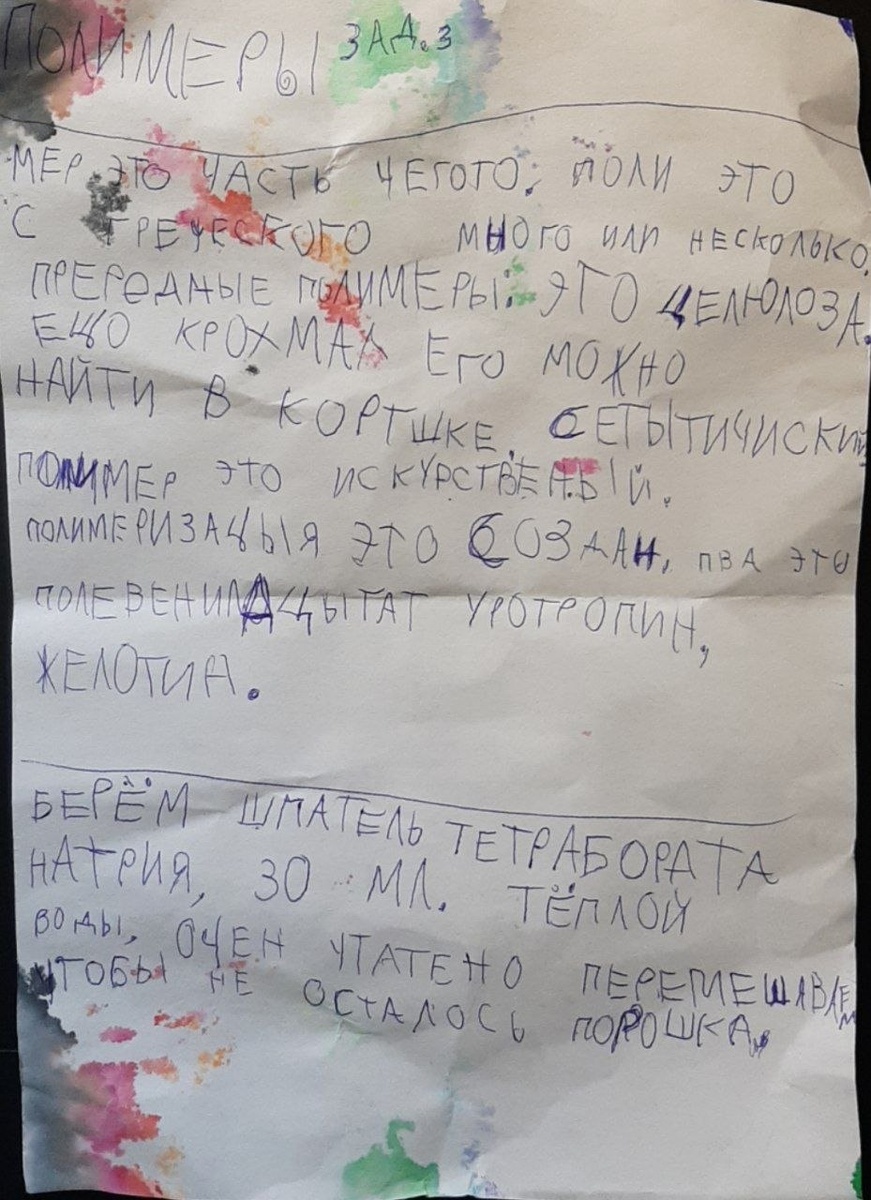 ПОЛИМЕРЫ ЗАД.3
МЕР ЭТО ЧАСТЬ ЧЕГОТО. ПОЛИ ЭТО
С ГРЕЧЕСКОГО МНОГО ИЛИ НЕСКОЛЬКО.
ПРЕРОДНЫЕ ПОЛИМЕРЫ: ЭТО ЦЕЛЮЛОЗА.
ЕЩО КРОХМАЛ ЕГО МОЖНО
НАЙТИ В КОРТШКЕ. СЕТЫТИЧИСКИЙ
ПОЛИМЕР ЭТО ИСКУРСТВЕНЫЙ.
ПОЛИМЕРИЗАЦЫЯ ЭТО СОЗДАН. ПВА ЭТО
ПОЛЕВЕНИЛАЦЫТАТ УРОТРОПИН,
ЖЕЛОТИН.
БЕРЁМ ШПАТЕЛЬ ТЕТРАБОРАТА
НАТРИЯ, 30 МЛ. ТЁПЛОЙ
ВОДЫ, ОЧЕН ЧТАТЕНО ПЕРЕМЕШАВАЕМ
ЧТОБЫ НЕ ОСТАЛОСЬ ПОРОШКА.